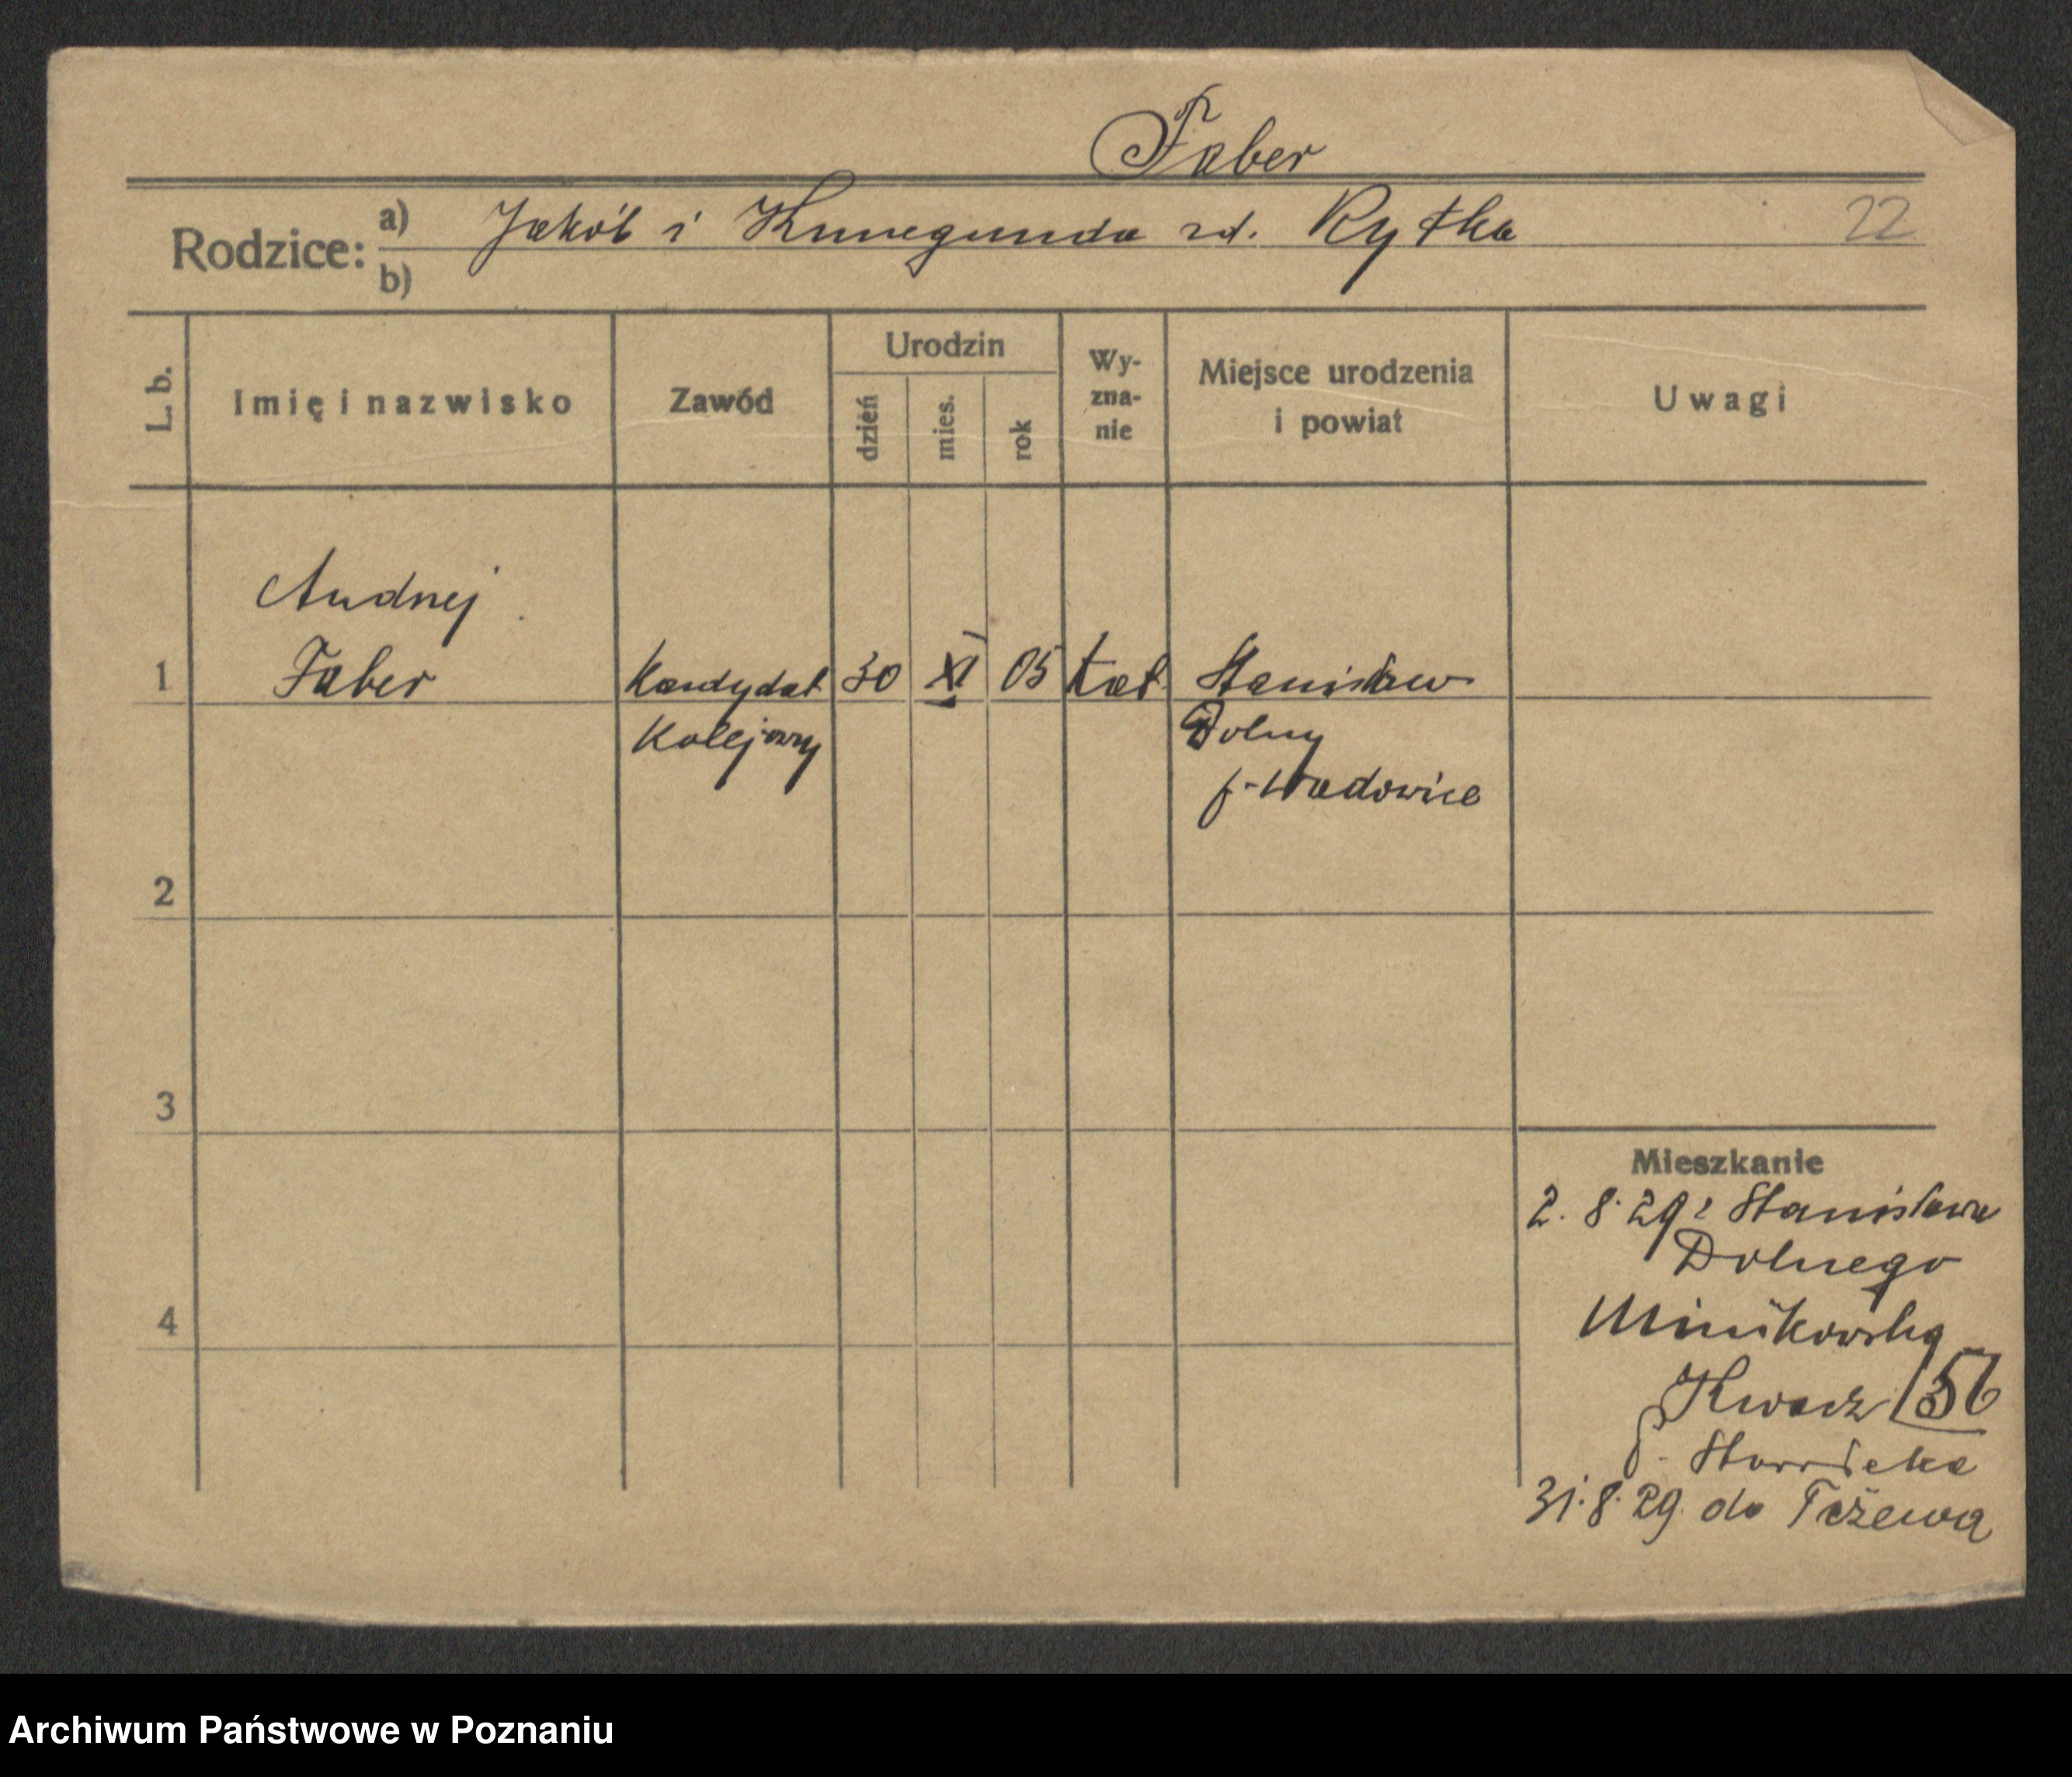 Faber
Rodzice: a) Jakób i Kunegunda zd. Rytka
22
b)
L. b.
Imię i nazwisko
Zawód
Urodzin
dzień
mies.
rok
Wy-
zna-
nie
Miejsce urodzenia
i powiat
Uwagi
Andrzej
1 Faber Kandydat 30 XI 05 kat Stanisław
Kolejowy Dolny
p. Wadowice
2
3
4
Mieszkanie
2. 8. 29 z Stanisława
Dolnego
Minikowska
56
31. 8. 29. do Tczewa
Archiwum Państwowe w Poznaniu